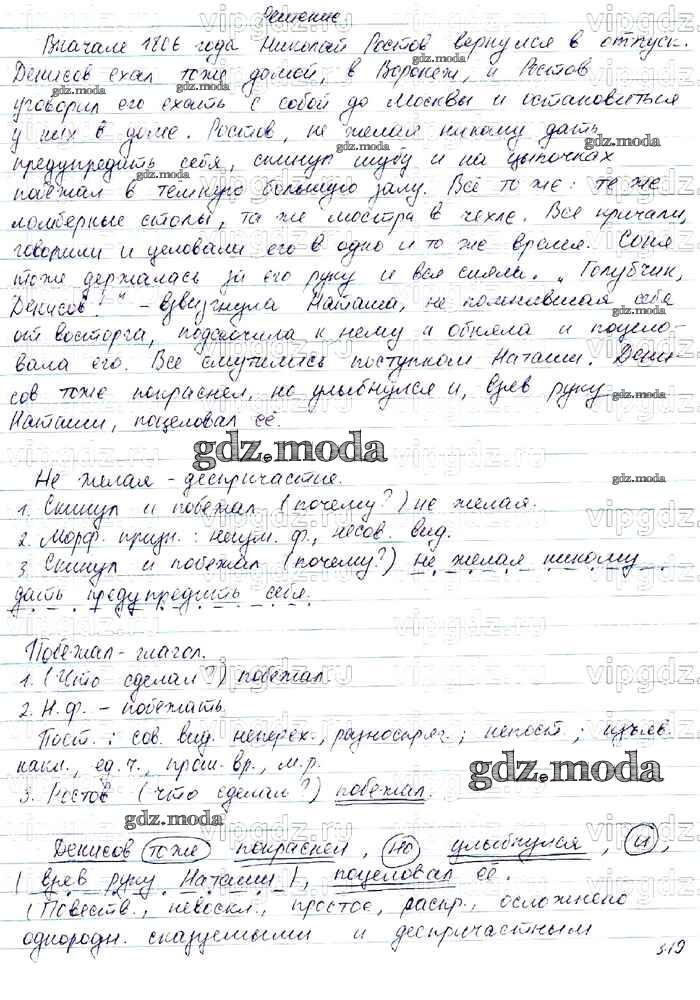 Решение
Вначале 1806 года Николай Ростов вернулся в отпуск.
Денисов ехал тоже домой, в Воронеж, и Ростов
уговорил его ехать с собой до Москвы и остановиться
у них в доме. Ростов, не желая никому дать
предупредить себя, скинул шубу и на цыпочках
побежал в темную большую залу. Всё то же: те же
ломберные столы, та же люстра в чехле. Все кричали,
говорили и целовали его в одно и то же время. Соня
тоже держалась за его руку и вся сияла. „Голубчик,
Денисов!" - взвизгнула Наташа, не помнившая себя
от восторга, подскочила к нему и обняла и поцело-
вала его. Все смутились поступком Наташи. Дени-
сов тоже покраснел, но улыбнулся и, взев руку
Наташи, поцеловал её.
gdz.moda
Не желая - деепричастие.
1. Скинул и побежал (почему?) не желая.
2. Морф. призн.: неизм. ф., несов. вид.
3. Скинул и побежал (почему?) не желая никому
дать предупредить себя.
Побежал - глагол.
1. (Что сделал?) побежал.
2. Н.ф. - побежать.
Пост.: сов. вид, неперех., разноспряг.; непост.; изъяв.
накл., ед.ч., прош. вр., м.р.
gdz.moda
3. Ростов (что сделал?) побежал.
gdz.moda
Денисов тоже покраснел, но улыбнулся, и,
| взев руку Наташи |, поцеловал её.
(Повеств., невоскл., простое, распр., осложнено
однородн. сказуемыми и деепричастным
319